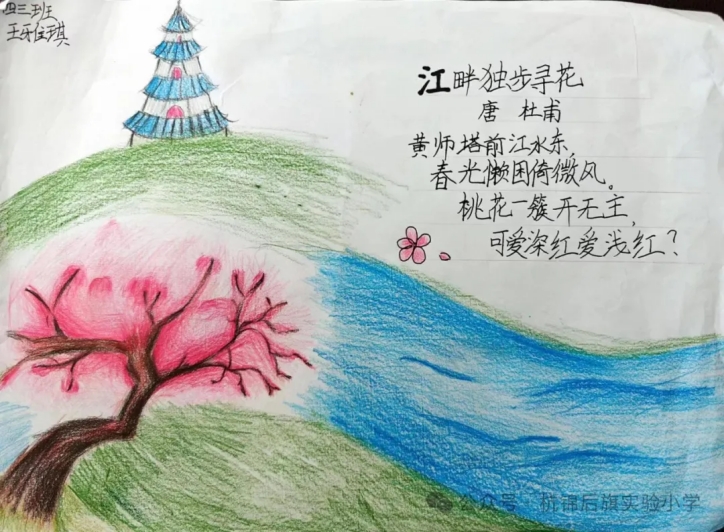 四三班
江畔独步寻花
唐 杜甫
黄师塔前江水东,
春光懒困倚微风。
桃花一簇开无主,
可爱深红爱浅红?
公众号·杭锦后旗实验小学